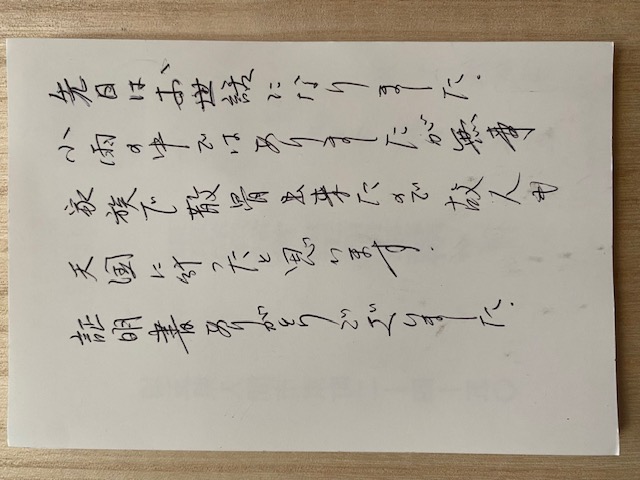 先日はお世話になりました.
小雨の中ではありましたが無事
家族で散骨出来たので故人も
天国に行ったと思います.
証明書ありがとうございました.